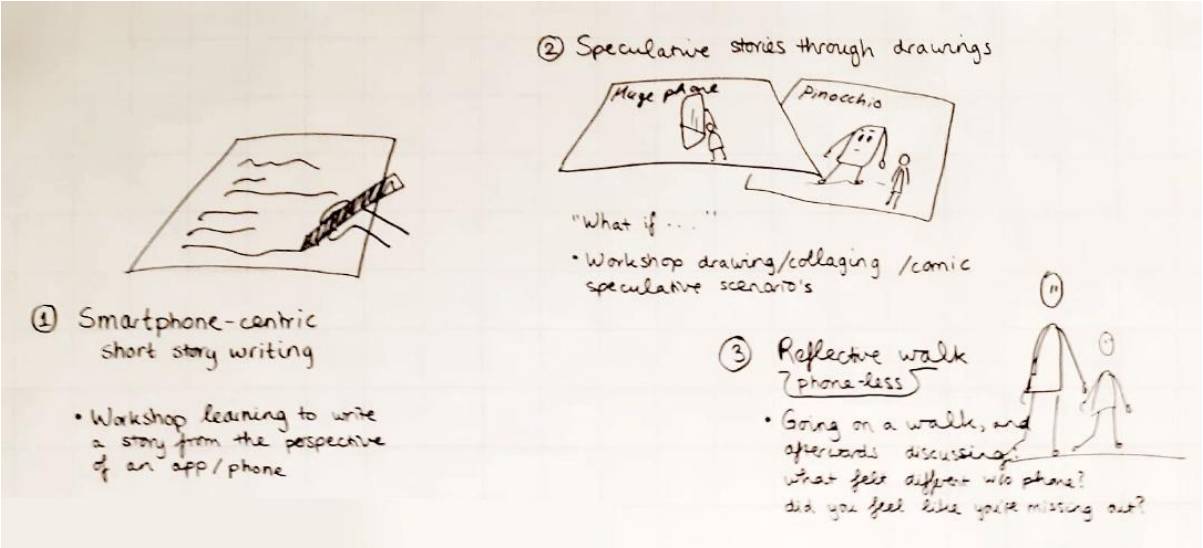 ① Smartphone-centric
short story writing
• Workshop learning to write
a story from the perspective
of an app/phone
② Speculative stories through drawings
Huge phone
Pinocchio
"What if ..."
• Workshop drawing/collaging/comic
speculative scenario's
③ Reflective walk
(phone-less)
• Going on a walk, and
afterwards discussing:
what felt different w/o phone?
did you feel like you're missing out?